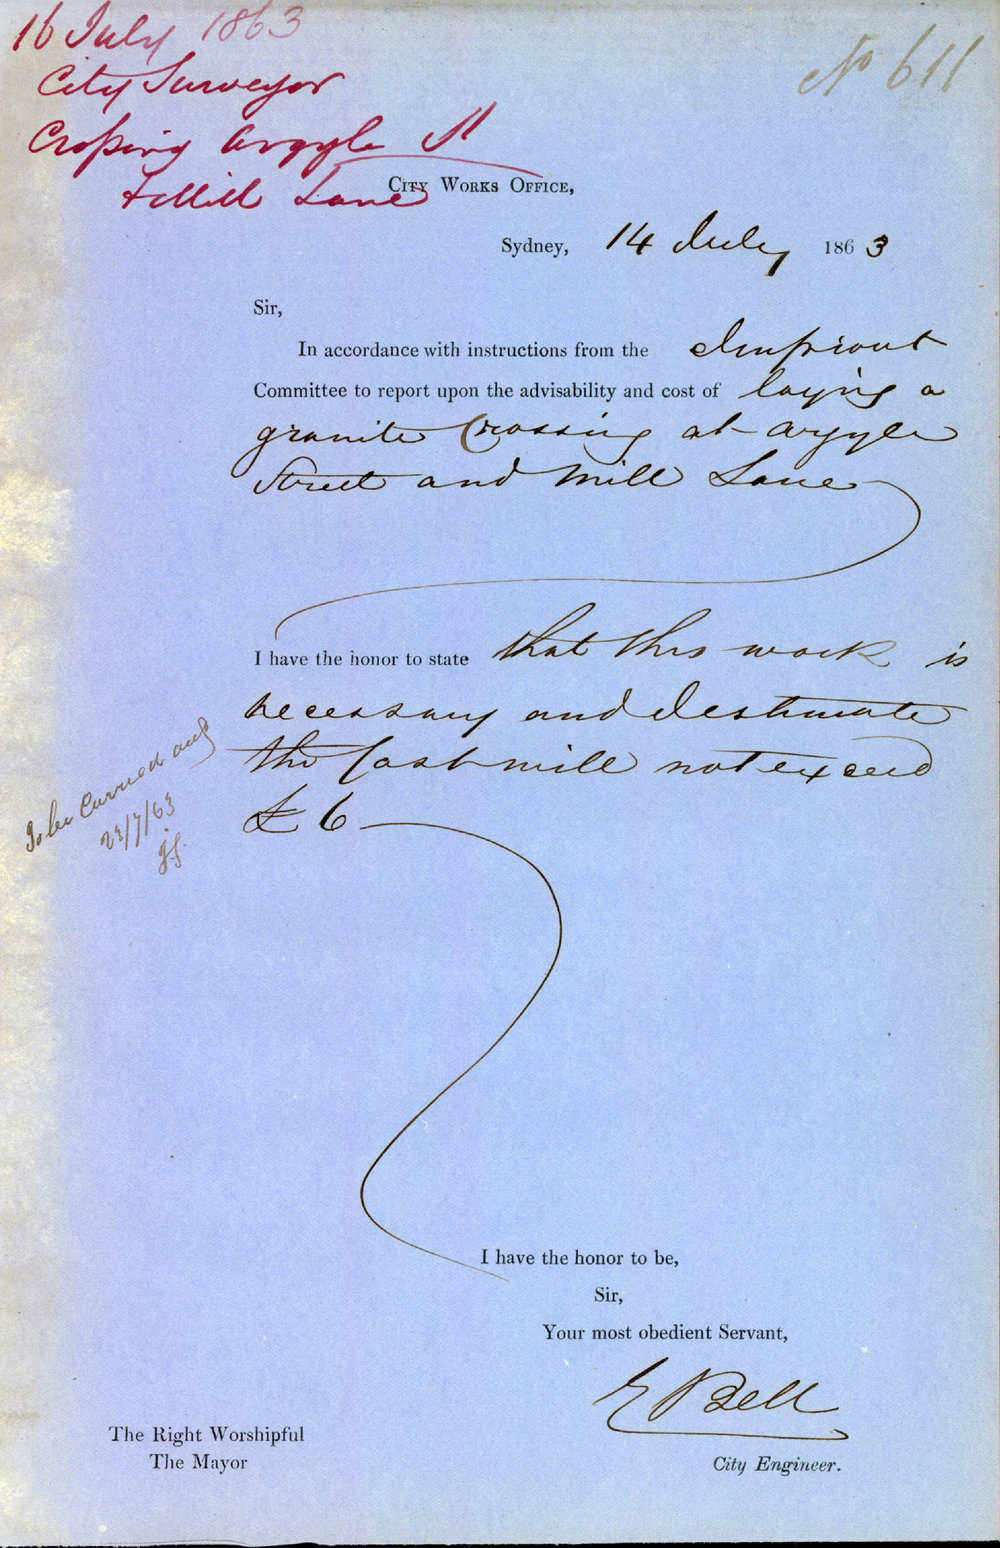 16 July 1863
No 611
City Surveyor
Crossing Argyle St
& Mill Lane
CITY WORKS OFFICE,
Sydney, 14 July 1863
Sir,
In accordance with instructions from the Improvt
Committee to report upon the advisability and cost of laying a
granite Crossing at Argyle
Street and Mill Lane
I have the honor to state that this work is
necessary and I estimate
the Cost will not exceed
£6
To be Carried out
23/7/63
I have the honor to be,
Sir,
Your most obedient Servant,
E Bell
City Engineer.
The Right Worshipful
The Mayor